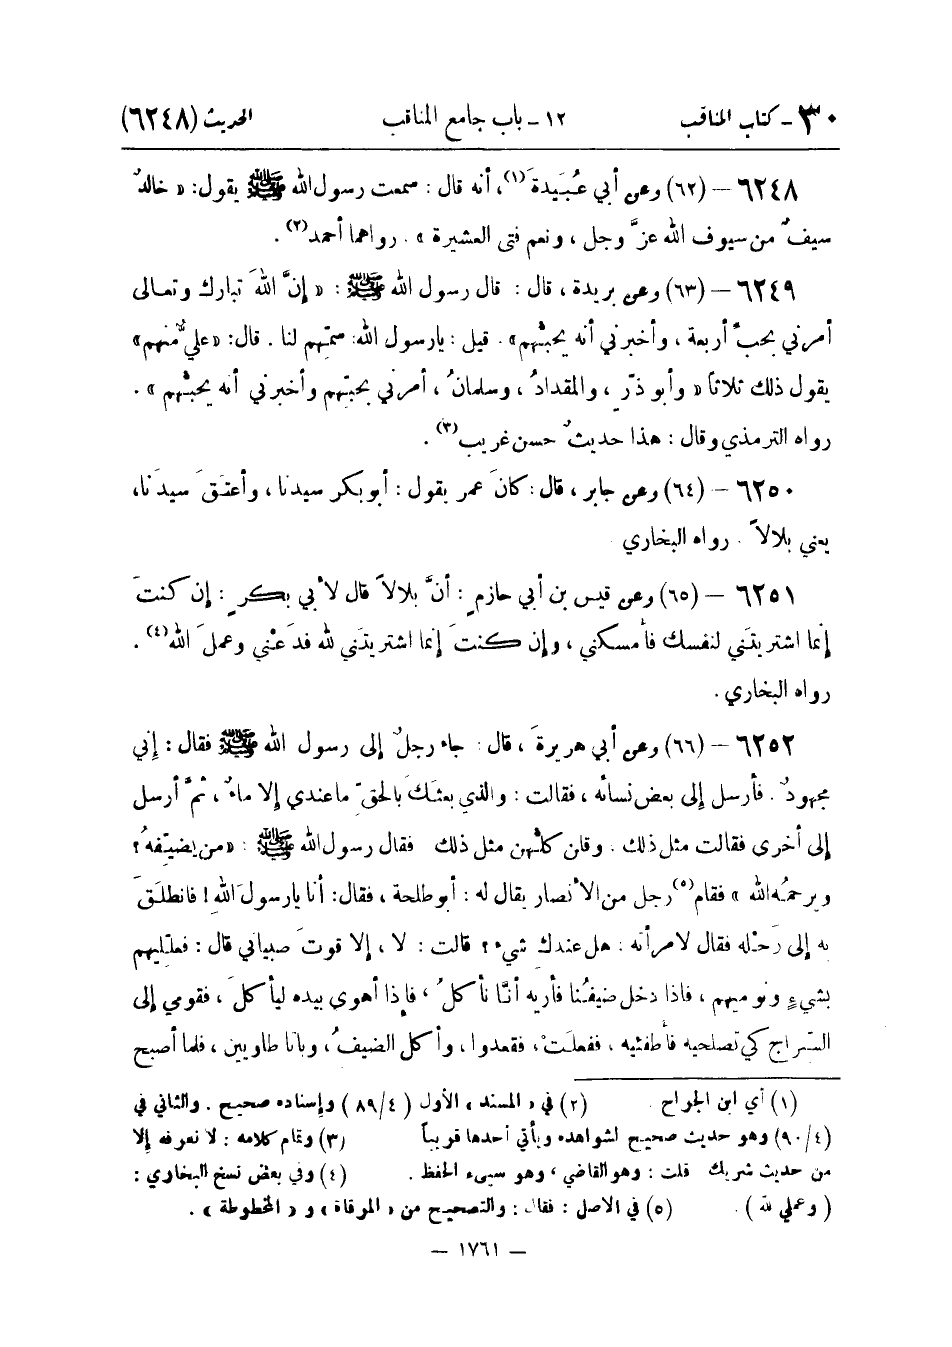 ٣٠ - كتاب المناقب ١٢ - باب جامع المناقب الحديث (٦٢٤٨)
٦٢٤٨ – (٦٢) وعن أبي عُبَيدةَ(١)، أنه قال : سمعت رسول الله ﷺ يقول: « خالدٌ
سيفٌ من سيوف الله عزَّ وجل ، ونعم فتى العشيرة » . رواهما أحمد(٢) .
٦٢٤٩ – (٦٣) وعن بريدة ، قال : قال رسول الله ﷺ : « إنَّ اللهَ تبارك وتعالى
أمرني بحبِّ أربعة ، وأخبرني أنه يحبُّهم» . قيل : يا رسول الله: سمِّهم لنا . قال: «عليٌّ منهم»
يقول ذلك ثلاثاً « وأبو ذرٍّ ، والمقدادُ ، وسلمانُ ، أمرني بحبِّهم وأخبرني أنه يحبُّهم » .
رواه الترمذي وقال : هذا حديثٌ حسن غريب(٣) .
٦٢٥٠ – (٦٤) وعن جابر ، قال : كانَ عمر يقول : أبو بكر سيدنا ، وأعتقَ سيدَنا،
يعني بلالاً . رواه البخاري
٦٢٥١ – (٦٥) وعن قيس بن أبي حازمٍ : أنَّ بلالاً قال لأبي بكرٍ : إن كنتَ
إنما اشتريتَني لنفسك فأمسكني ، وإن كنتَ إنما اشتريتَني لله فدَعْني وعملَ الله(٤) .
رواه البخاري .
٦٢٥٢ – (٦٦) وعن أبي هريرةَ ، قال : جاء رجلٌ إلى رسول الله ﷺ فقال : إني
مجهودٌ . فأرسل إلى بعض نسائه ، فقالت : والذي بعثكَ بالحقِّ ما عندي إلا ماءٌ ، ثمَّ أرسل
إلى أخرى فقالت مثل ذلك . وقلن كلُّهن مثل ذلك فقال رسول الله ﷺ : «من يضيِّفهُ ؟
ويرحمُه الله » فقام(٥) رجل من الأنصار يقال له : أبو طلحة ، فقال: أنا يا رسولَ الله ! فانطلَقَ
به إلى رَحْله فقال لامرأته : هل عندك شيءٌ ؟ قالت : لا ، إلا قوتَ صبياني قال : فعلّليهم
بشيءٍ ونوميهم ، فاذا دخل ضيفُنا فأريه أنَّا نأكلُ ، فإذا أهوى بيده ليأكلَ ، فقومي إلى
السِّراج كي تصلحيه فأطفئيه ، ففعلَتْ ، فقعدوا ، وأكل الضيفُ ، وباتا طاويين ، فلما أصبح
(١) أي ابن الجراح . (٢) في « المسند » الأول ( ٨٩/٤ ) وإسناده صحيح . والثاني في
(٩٠/٤) وهو حديث صحيح لشواهده ويأتي أحدها قريباً (٣) وتمام كلامه : لا نعرفه إلا
من حديث شريك قلت : وهو القاضي ، وهو سيىء الحفظ . (٤) وفي بعض نسخ البخاري :
( وعملي لله ) . (٥) في الاصل : فقال : والتصحيح من « المرقاة » و « المخطوطة » .
– ١٧٦١ –